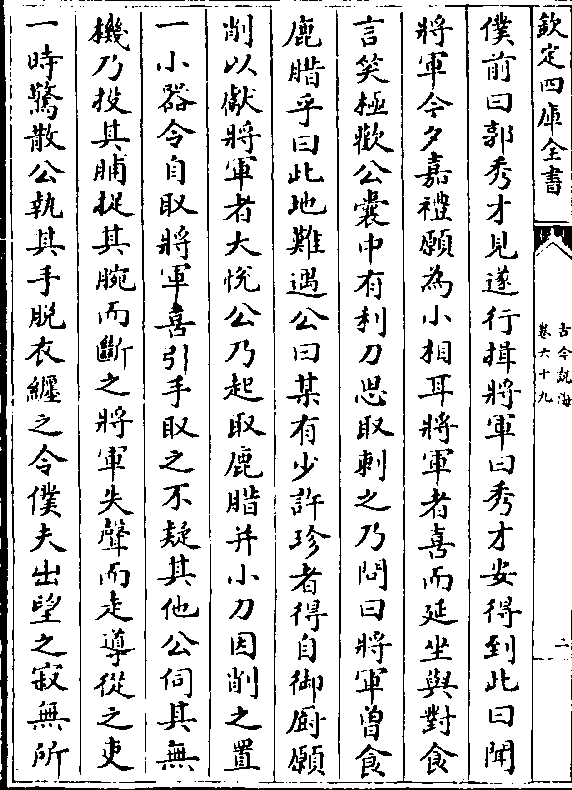 欽定四庫全書
古今說海
卷六十九
二
僕前曰郭秀才見遂行揖將軍曰秀才安得到此曰聞
將軍今夕嘉禮願為小相耳將軍者喜而延坐與對食
言笑極歡公囊中有利刀思取刺之乃問曰將軍曾食
鹿腊乎曰此地難遇公曰某有少許珍者得自御厨願
削以獻將軍者大悅公乃起取鹿腊并小刀因削之置
一小器令自取將軍喜引手取之不疑其他公伺其無
機乃投其脯捉其腕而斷之將軍失聲而走導從之吏
一時驚散公執其手脫衣纏之令僕夫出望之寂無所